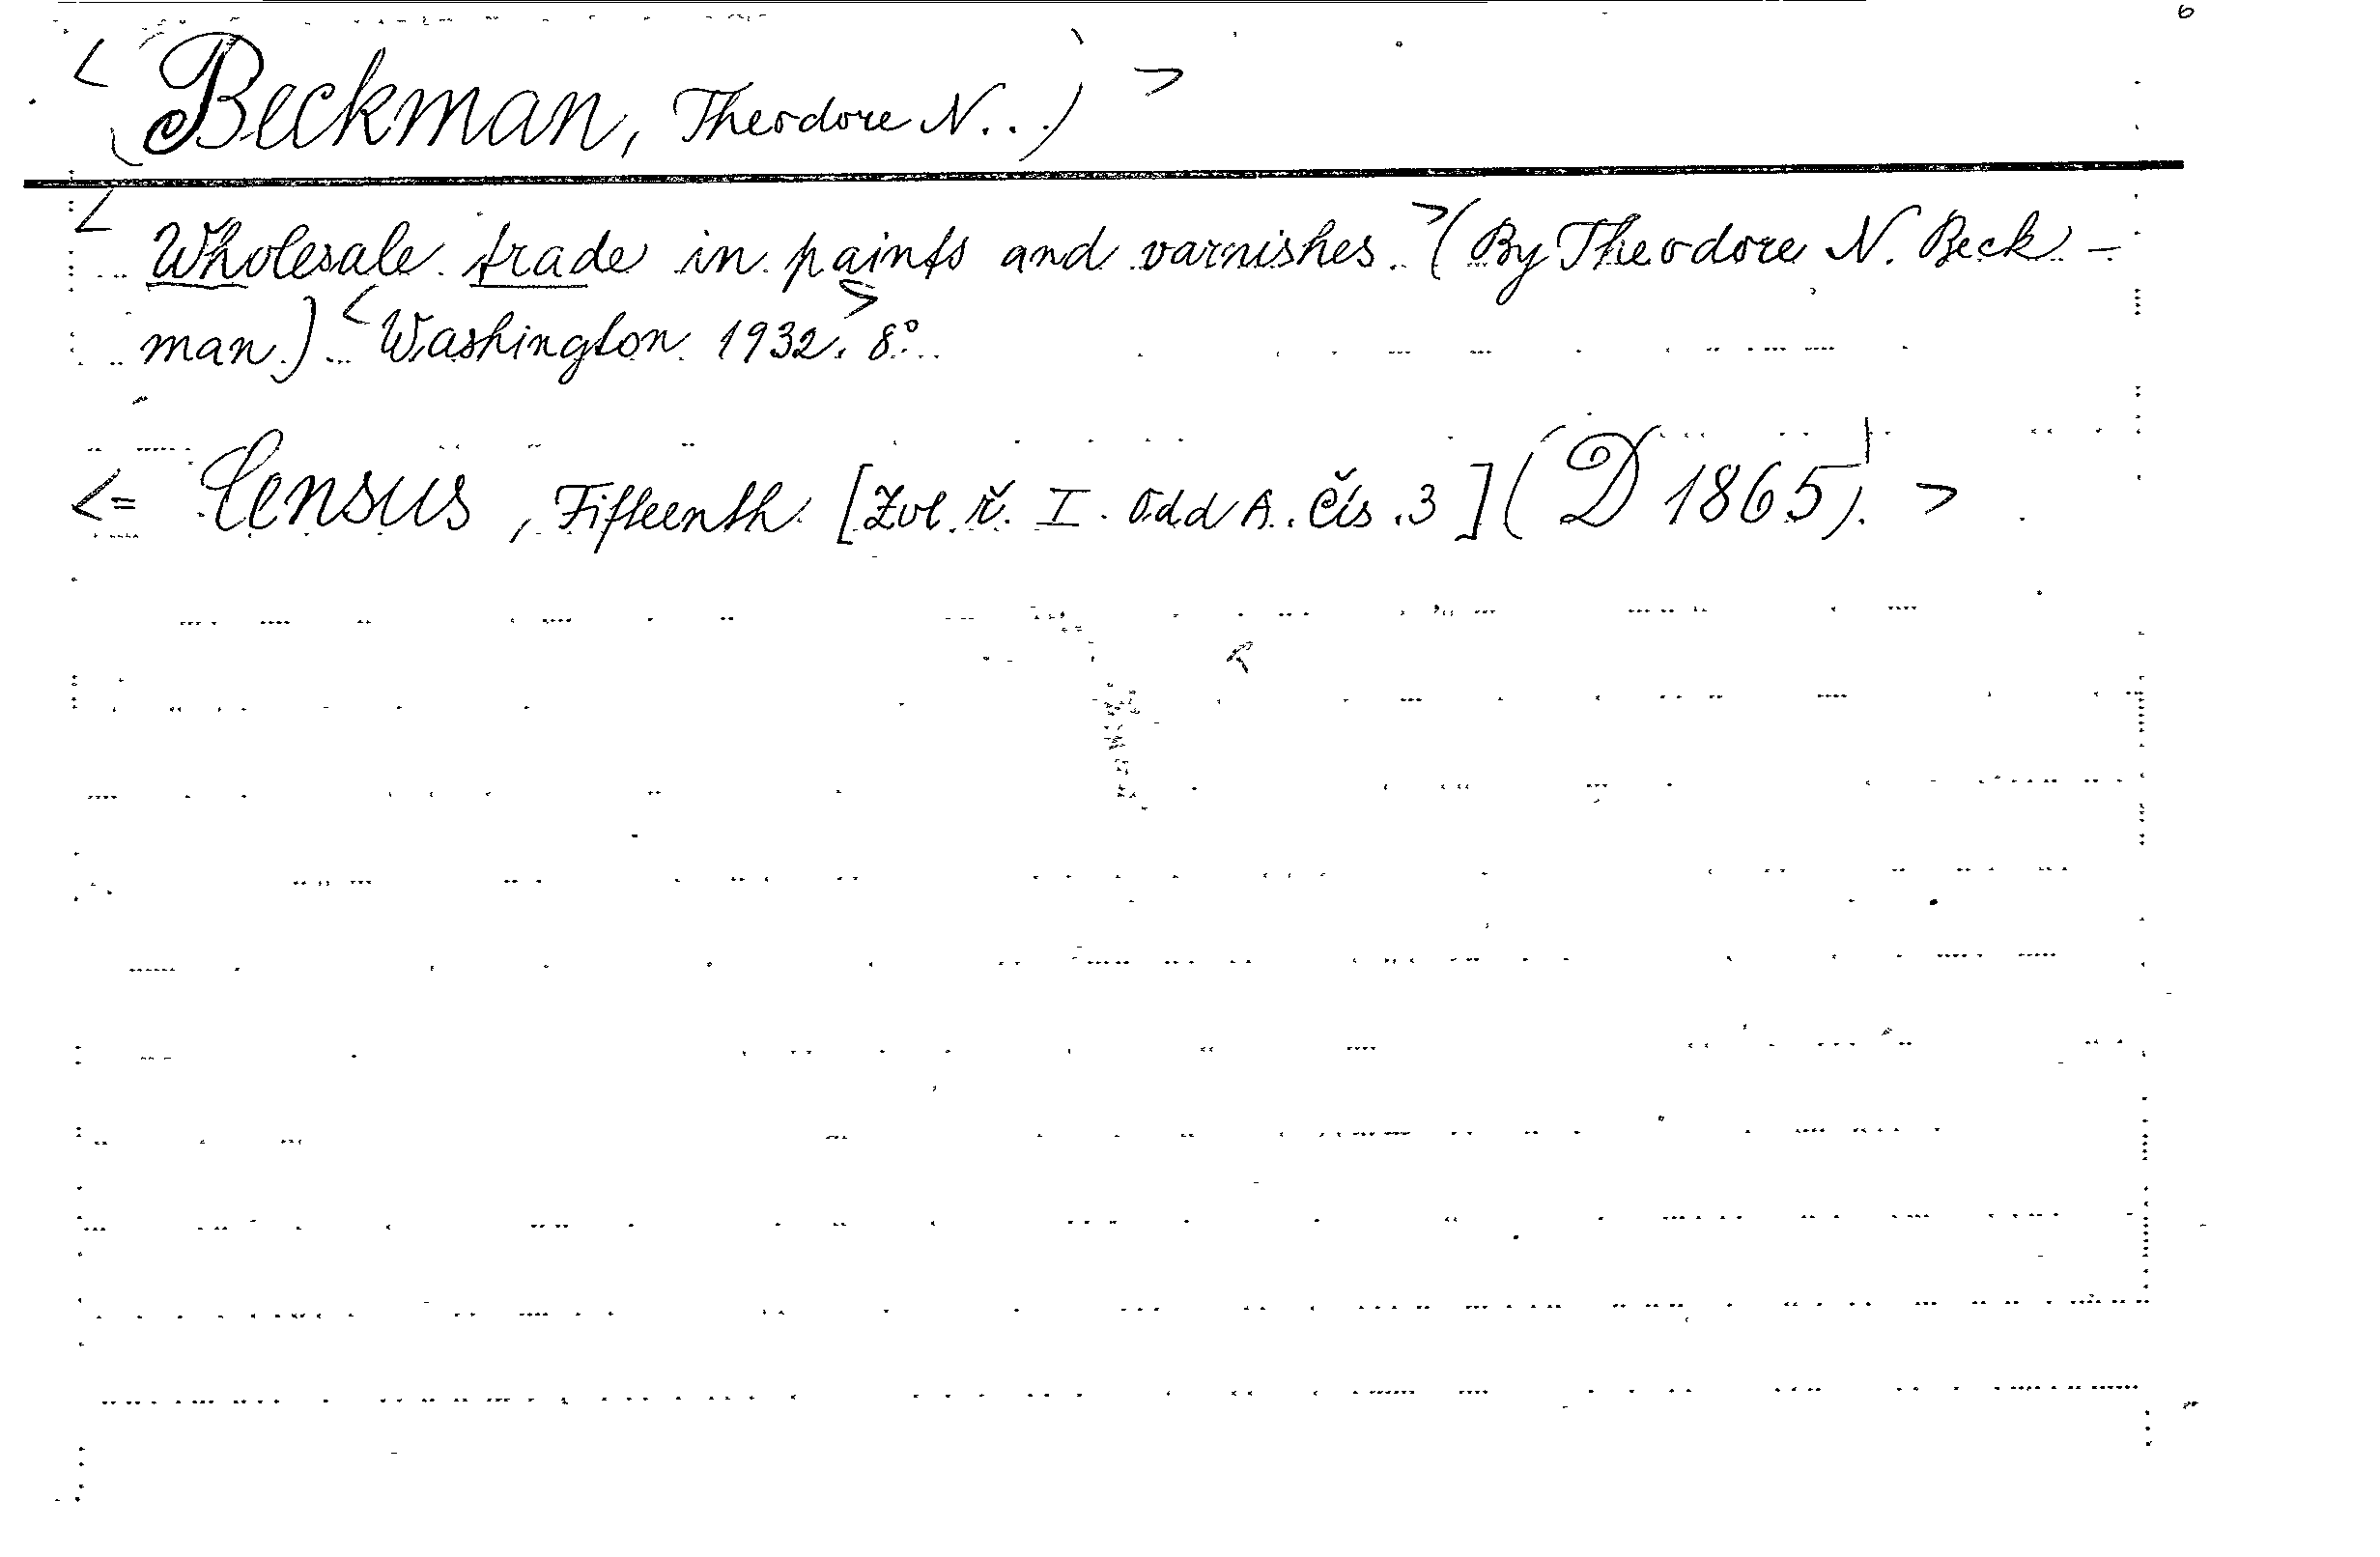 6
< (Beckman, Theodore N..) >
< Wholesale trade in paints and varnishes. > (By Theodore N. Beck-
man.) < Washington 1932. > 8°.
<= Census, Fifteenth. [Zvl. ř. I. Odd A. Čís. 3] (D 1865). >